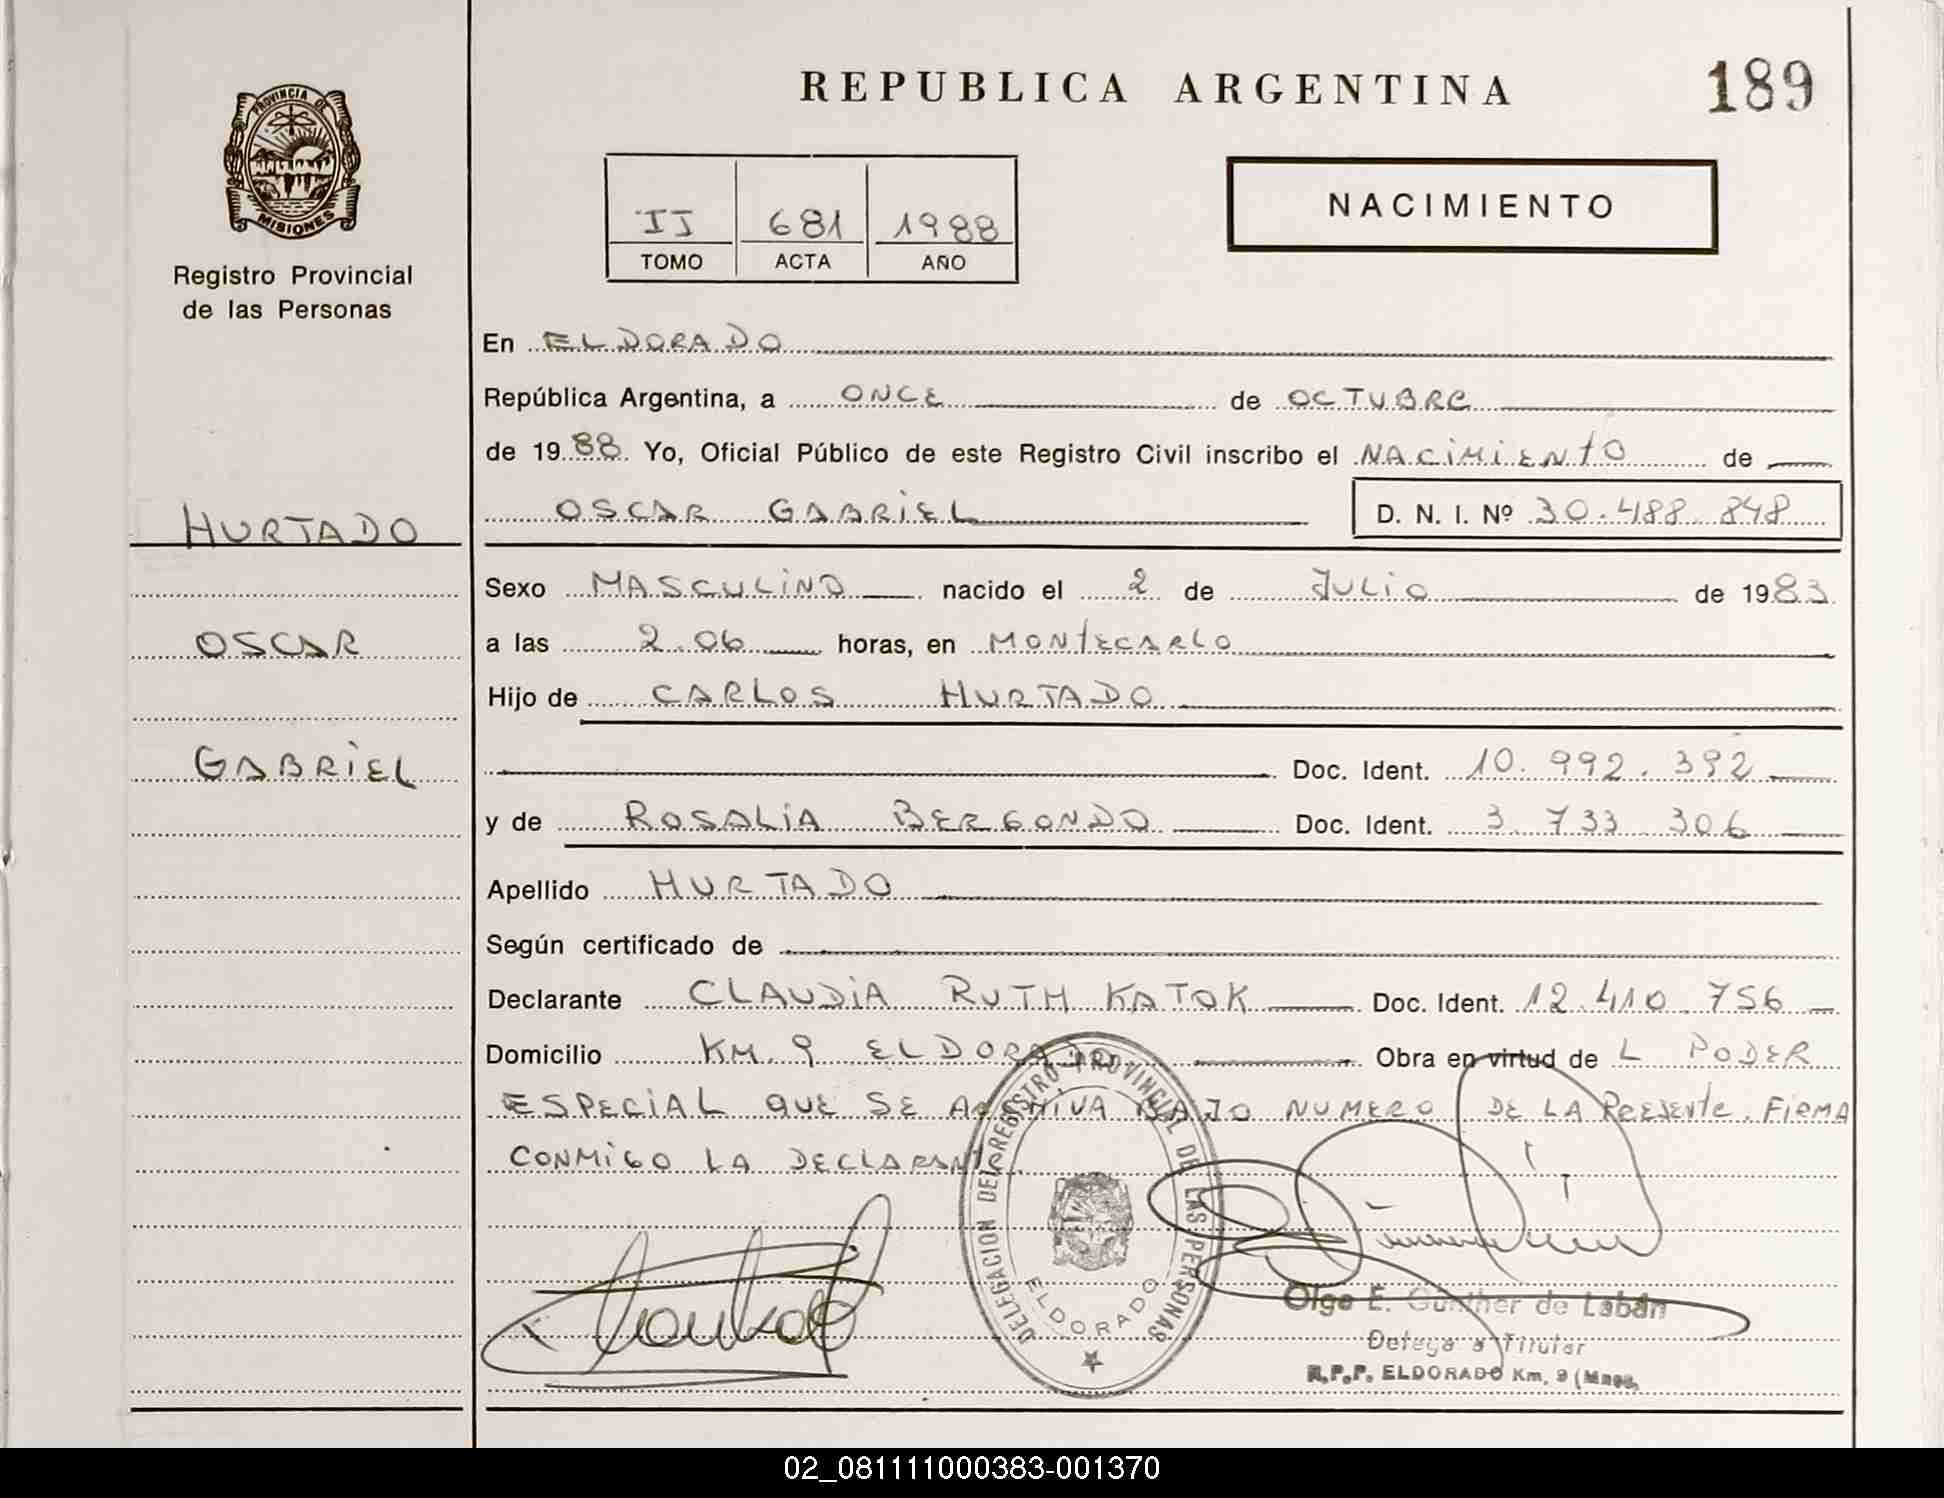 REPUBLICA ARGENTINA
189
PROVINCIA DE
MISIONES
Registro Provincial
de las Personas
II 681 1988
TOMO ACTA AÑO
NACIMIENTO
En ELDORADO
República Argentina, a ONCE de OCTUBRE
de 1988 Yo, Oficial Público de este Registro Civil inscribo el NACIMIENTO de
OSCAR GABRIEL D. N. I. Nº 30.488.848
HURTADO
OSCAR
GABRIEL
Sexo MASCULINO nacido el 2 de JULIO de 1983
a las 2.06 horas, en MONTECARLO
Hijo de CARLOS HURTADO
Doc. Ident. 10.992.392
y de ROSALIA BERGONDO Doc. Ident. 3 733 306
Apellido HURTADO
Según certificado de
Declarante CLAUDIA RUTH KATOK Doc. Ident. 12.410.756
Domicilio KM. 9 ELDORADO Obra en virtud de L PODER
ESPECIAL QUE SE ARCHIVA BAJO NUMERO DE LA PRESENTE. FIRMA
CONMIGO LA DECLARANTE.
DELEGACION DEL REGISTRO PROVINCIAL DE LAS PERSONAS
ELDORADO
Olga E. Gunther de Labán
Delegada Titular
R.P.P. ELDORADO Km. 9 (Mnes.
02_081111000383-001370